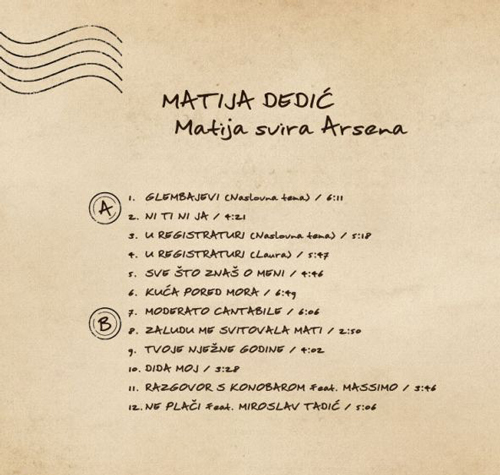 MATIJA DEDIĆ
Matija svira Arsena
A
1. GLEMBAJEVI (Naslovna tema) / 6:11
2. NI TI NI JA / 4:21
3. U REGISTRATURI (Naslovna tema) / 5:18
4. U REGISTRATURI (Laura) / 5:47
5. SVE ŠTO ZNAŠ O MENI / 4:46
6. KUĆA PORED MORA / 6:49
B
7. MODERATO CANTABILE / 6:06
8. ZALUDU ME SVITOVALA MATI / 2:50
9. TVOJE NJEŽNE GODINE / 4:02
10. DIDA MOJ / 3:28
11. RAZGOVOR S KONOBAROM feat. MASSIMO / 3:46
12. NE PLAČI feat. MIROSLAV TADIĆ / 5:06